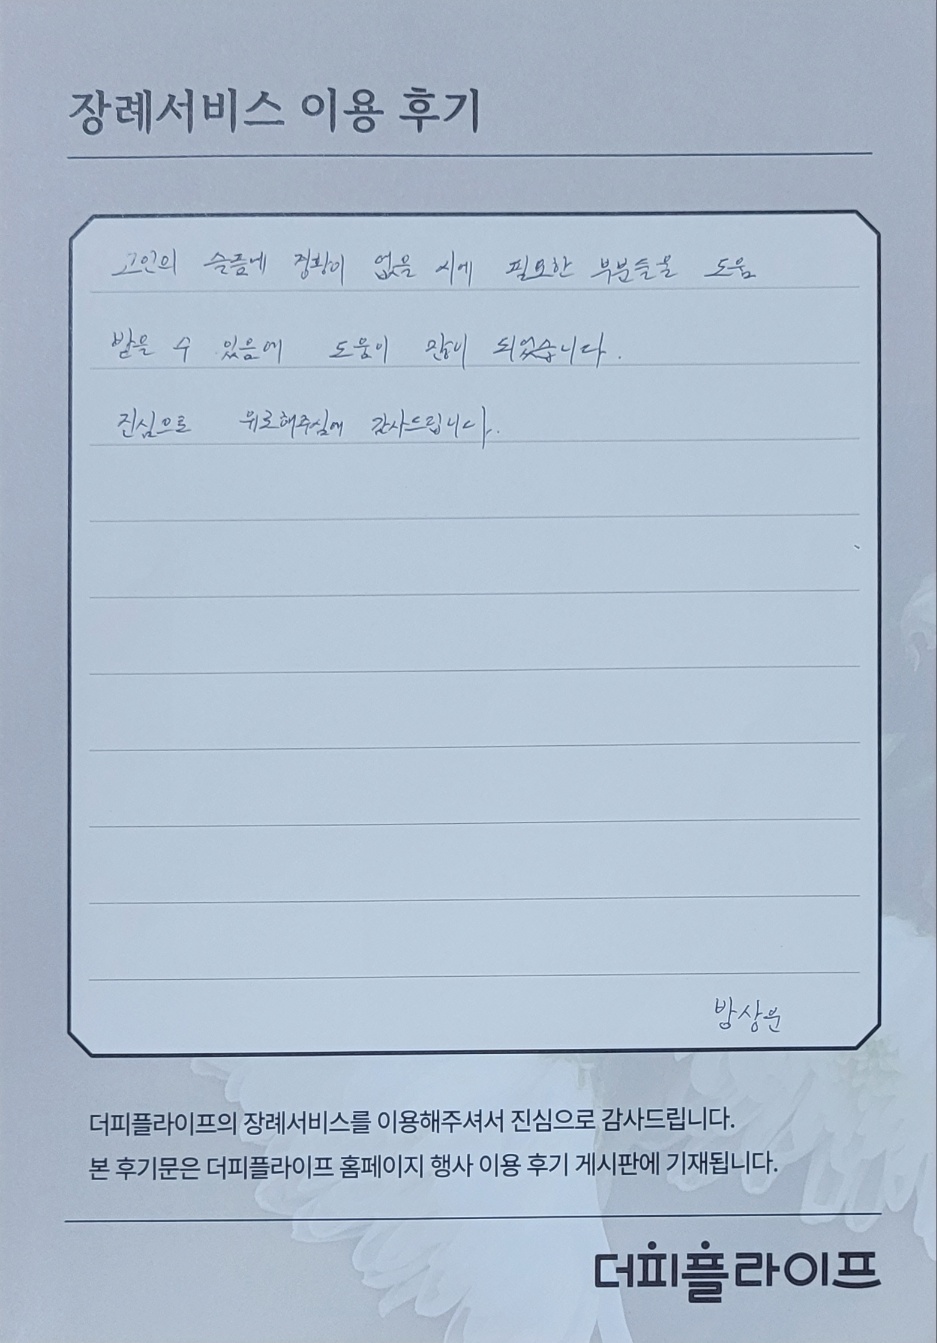 장례서비스 이용 후기
고인의 슬픔에 정황이 없을 시에 필요한 부분들을 도움
받을 수 있음에 도움이 많이 되었습니다.
진심으로 위로해주심에 감사드립니다.
더피플라이프의 장례서비스를 이용해주셔서 진심으로 감사드립니다.
본 후기문은 더피플라이프 홈페이지 행사 이용 후기 게시판에 기재됩니다.
더피플라이프